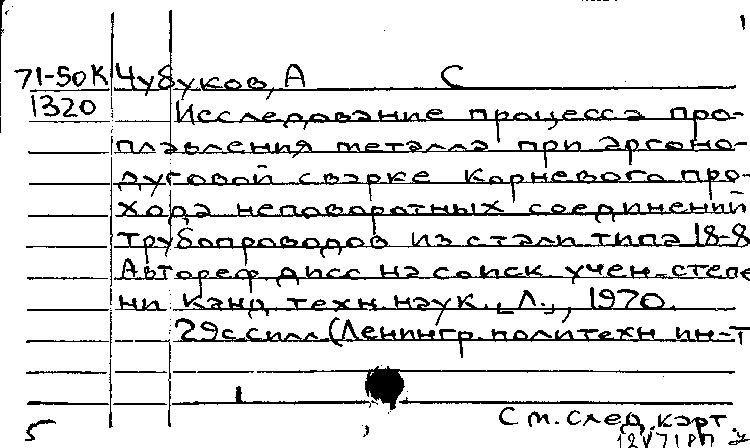 71-50К Чубуков, А С
1320 Исследование процесса про-
плавления металла при аргоно-
дуговой сварке корневого про-
хода неповоротных соединений
трубопроводов из стали типа 18-8
Автореф дисс на соиск учен степе
ни канд техн. наук. Л., 1970.
29с силл (Ленингр. политехн ин-т
См. след. карт.
5